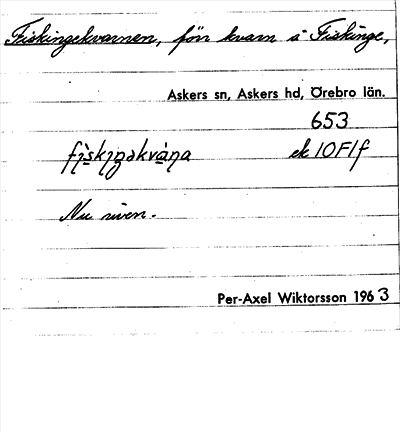 Fiskingekvarnen, förr kvarn i Fiskinge,
Askers sn, Askers hd, Örebro län.
653
ek 10F1f
Nu riven.
Per-Axel Wiktorsson 1963